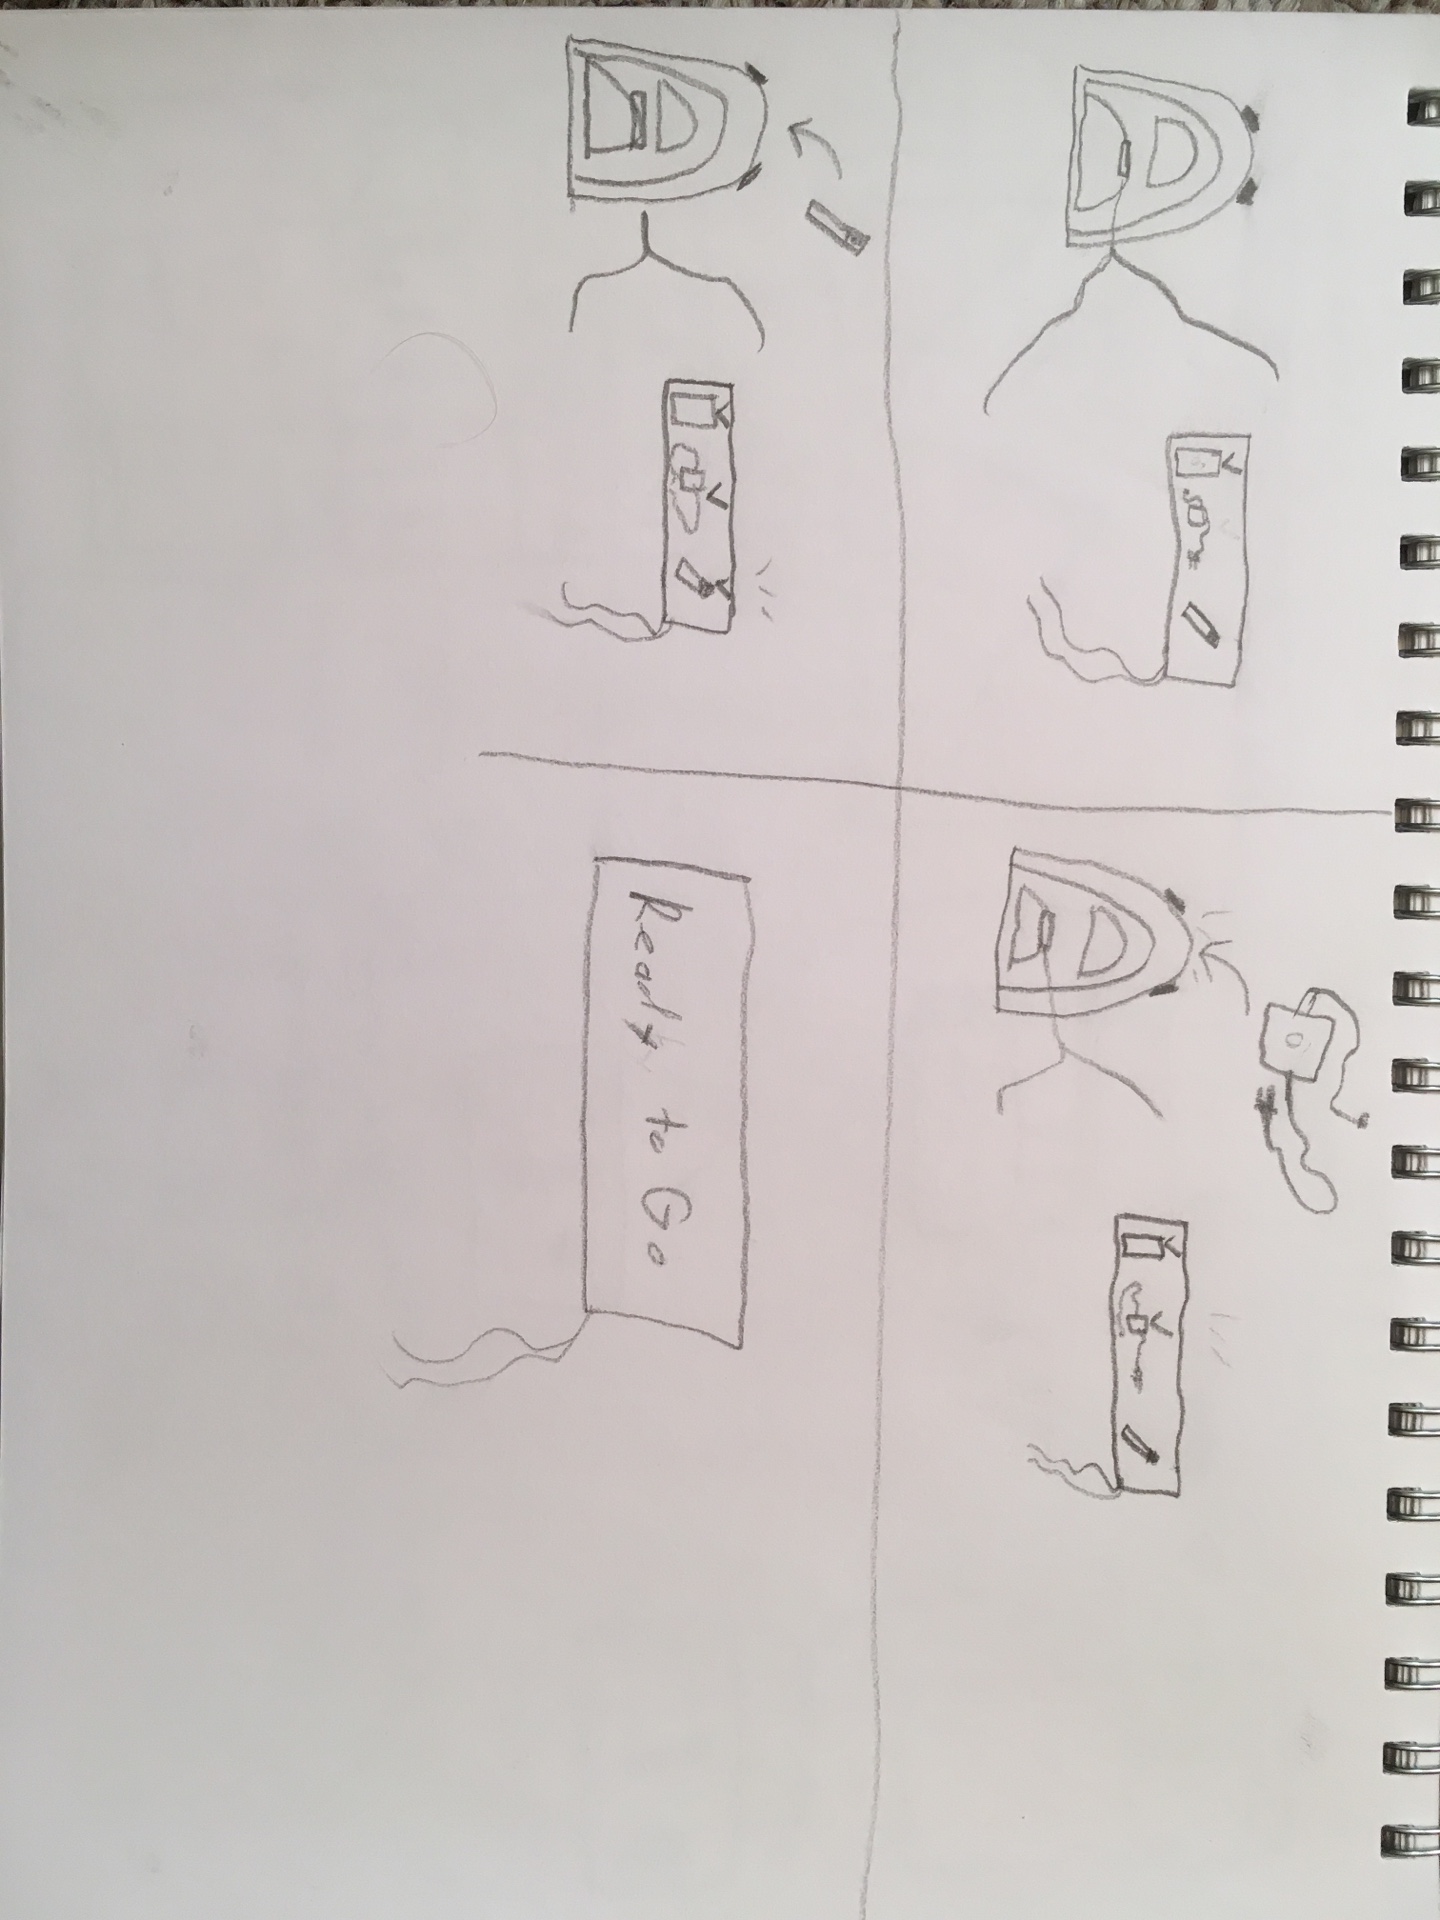 Ready to Go